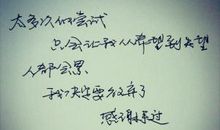 太多次的尝试
只会让我从希望到失望
人都会累
于是决定要放弃了
感谢来过